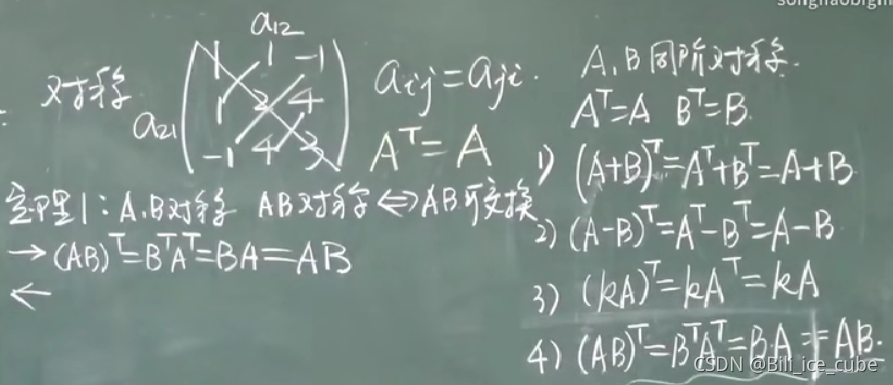 a₁₂
对称
a₂₁
1 1 -1
1 2 4
-1 4 3
aᵢⱼ=aⱼᵢ.
Aᵀ=A
定理1:A.B对称 AB对称⇔AB可交换
→(AB)ᵀ=BᵀAᵀ=BA=AB
←
A.B同阶对称.
Aᵀ=A Bᵀ=B
1) (A+B)ᵀ=Aᵀ+Bᵀ=A+B
2) (A-B)ᵀ=Aᵀ-Bᵀ=A-B
3) (kA)ᵀ=kAᵀ=kA
4) (AB)ᵀ=BᵀAᵀ=BA≠AB.
CSDN @Bili_ice_cube